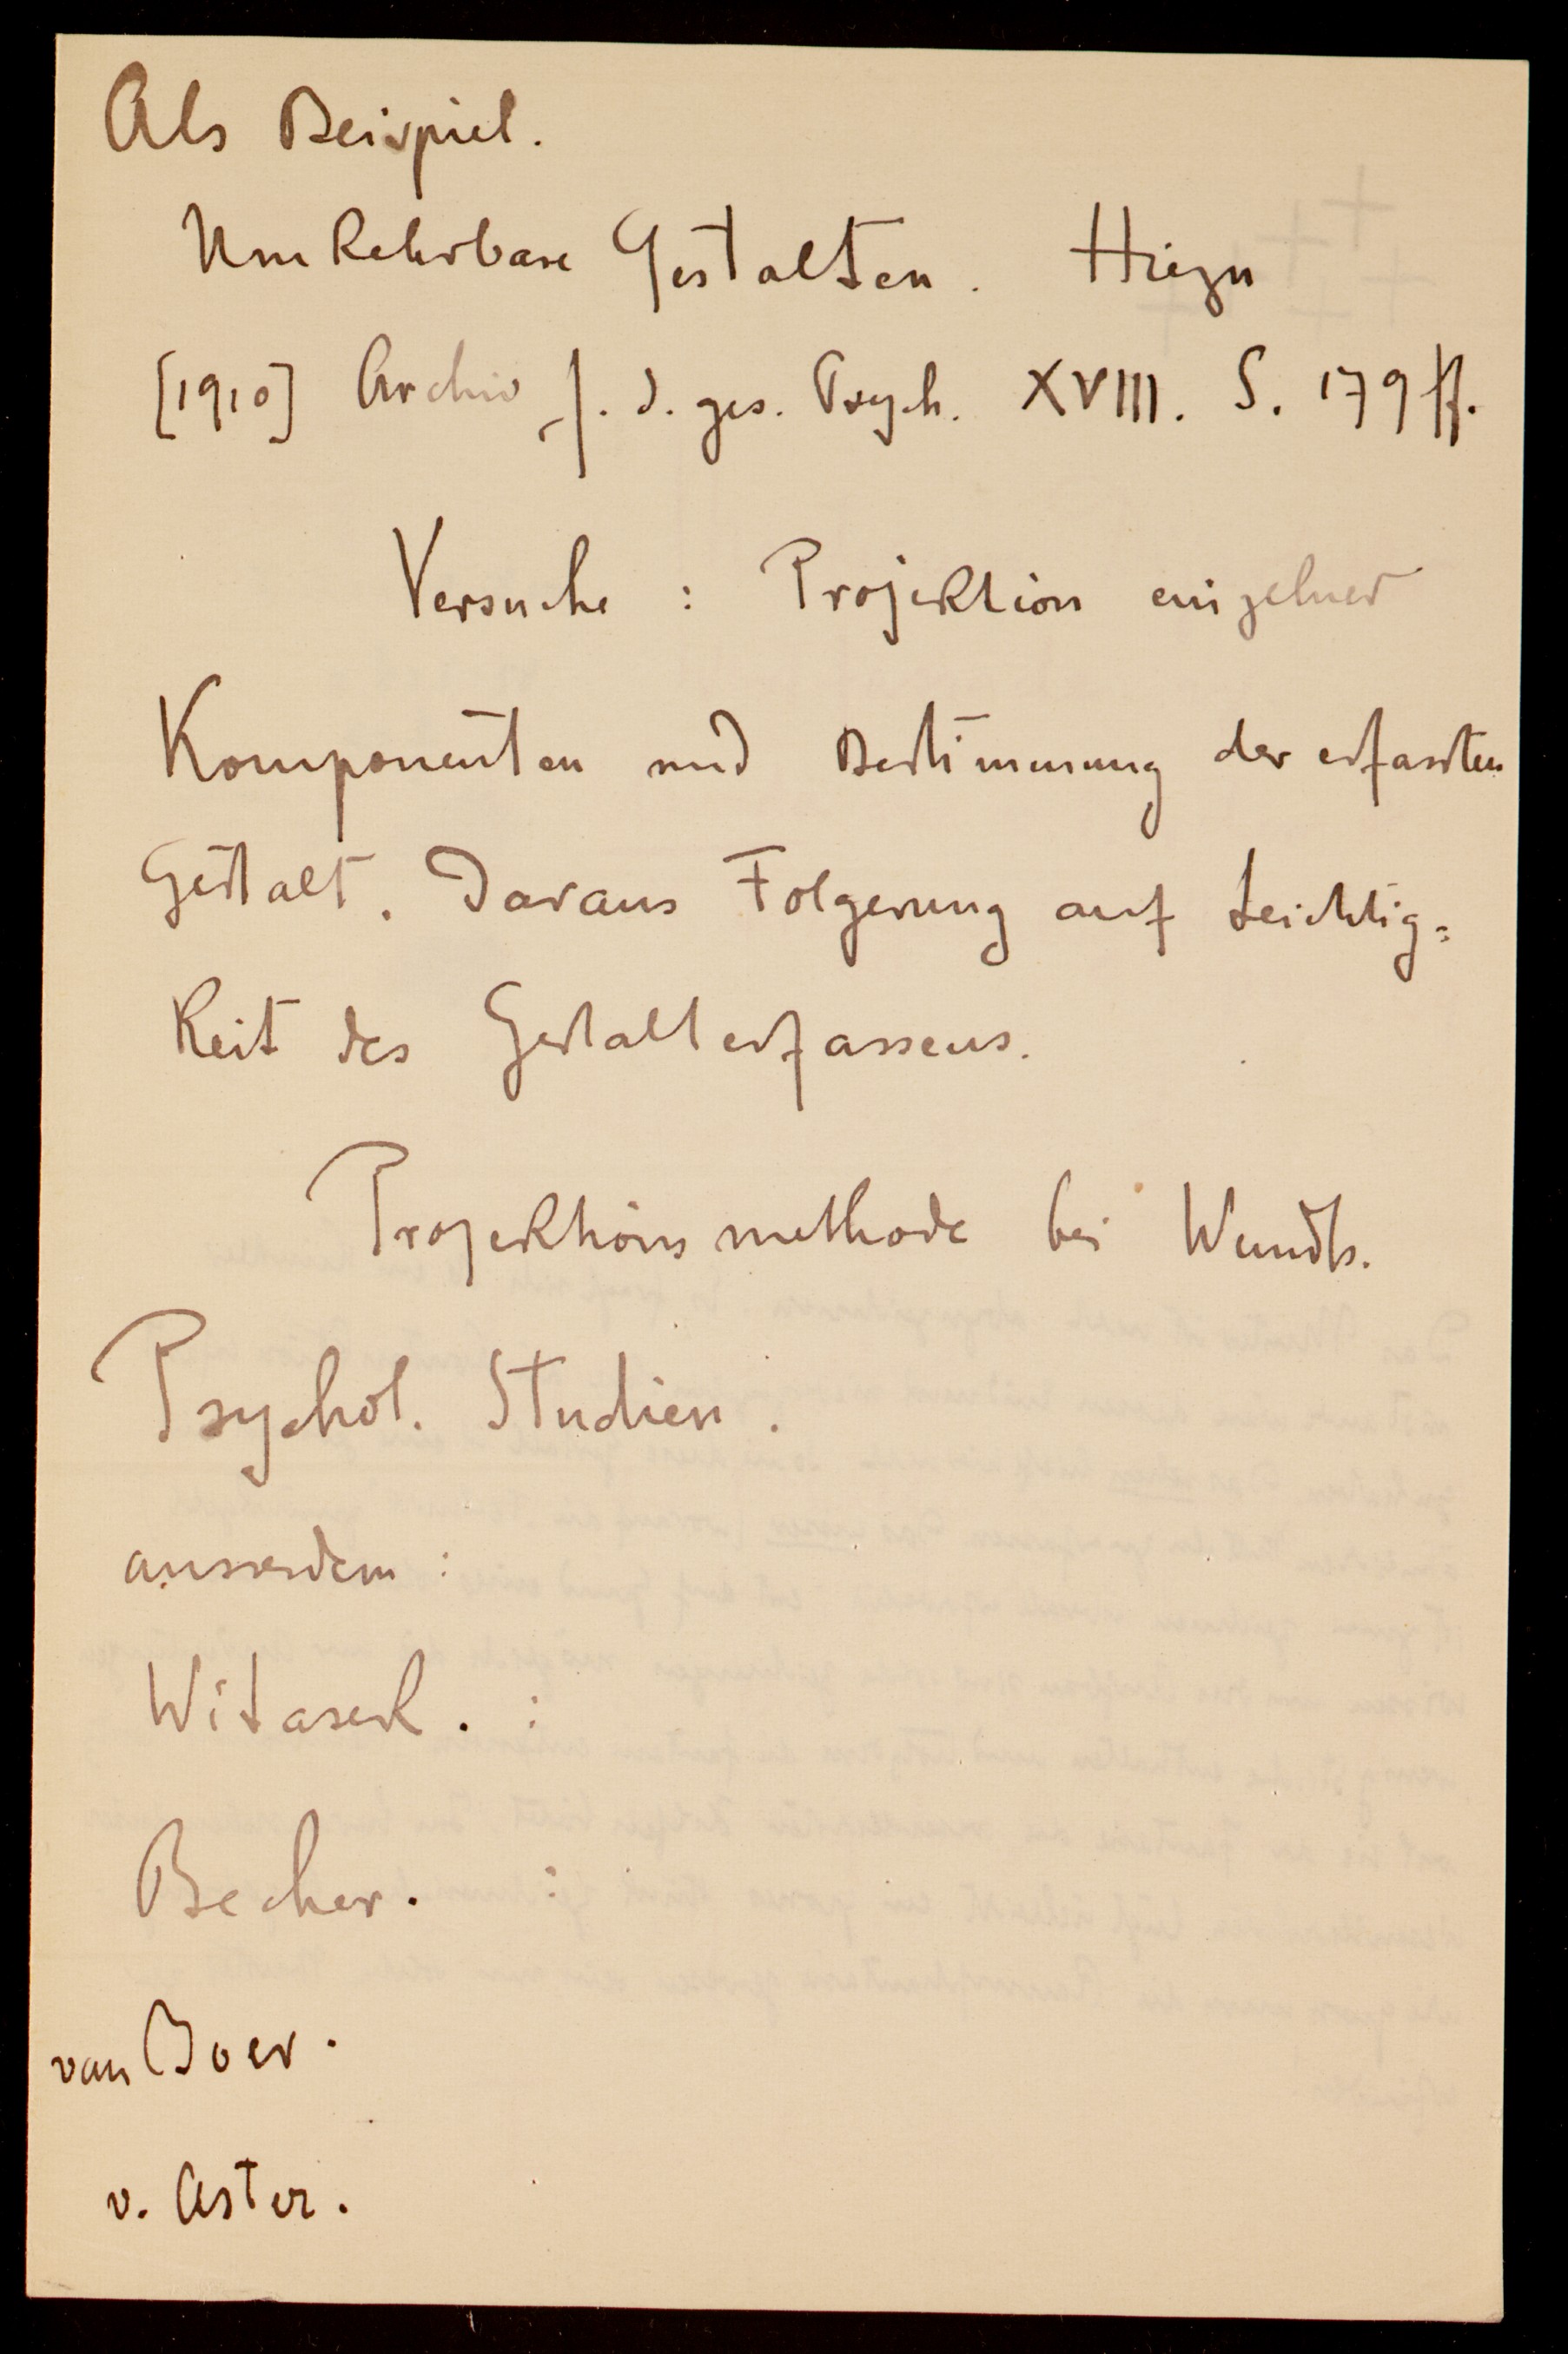 Als Beispiel.
Umkehrbare Gestalten. Hiezu
[1910] Archiv f. d. ges. Psych. XVIII. S. 179 ff.
Versuche : Projektion einzelner
Komponenten und Bestimmung der erfassten
Gestalt. Daraus Folgerung auf Leichtig=
keit des Gestalterfassens.
Projektionsmethode bei Wundts.
Psychol. Studien.
ausserdem :
Witasek. :
Becher. :
van Boer.
v. Aster.